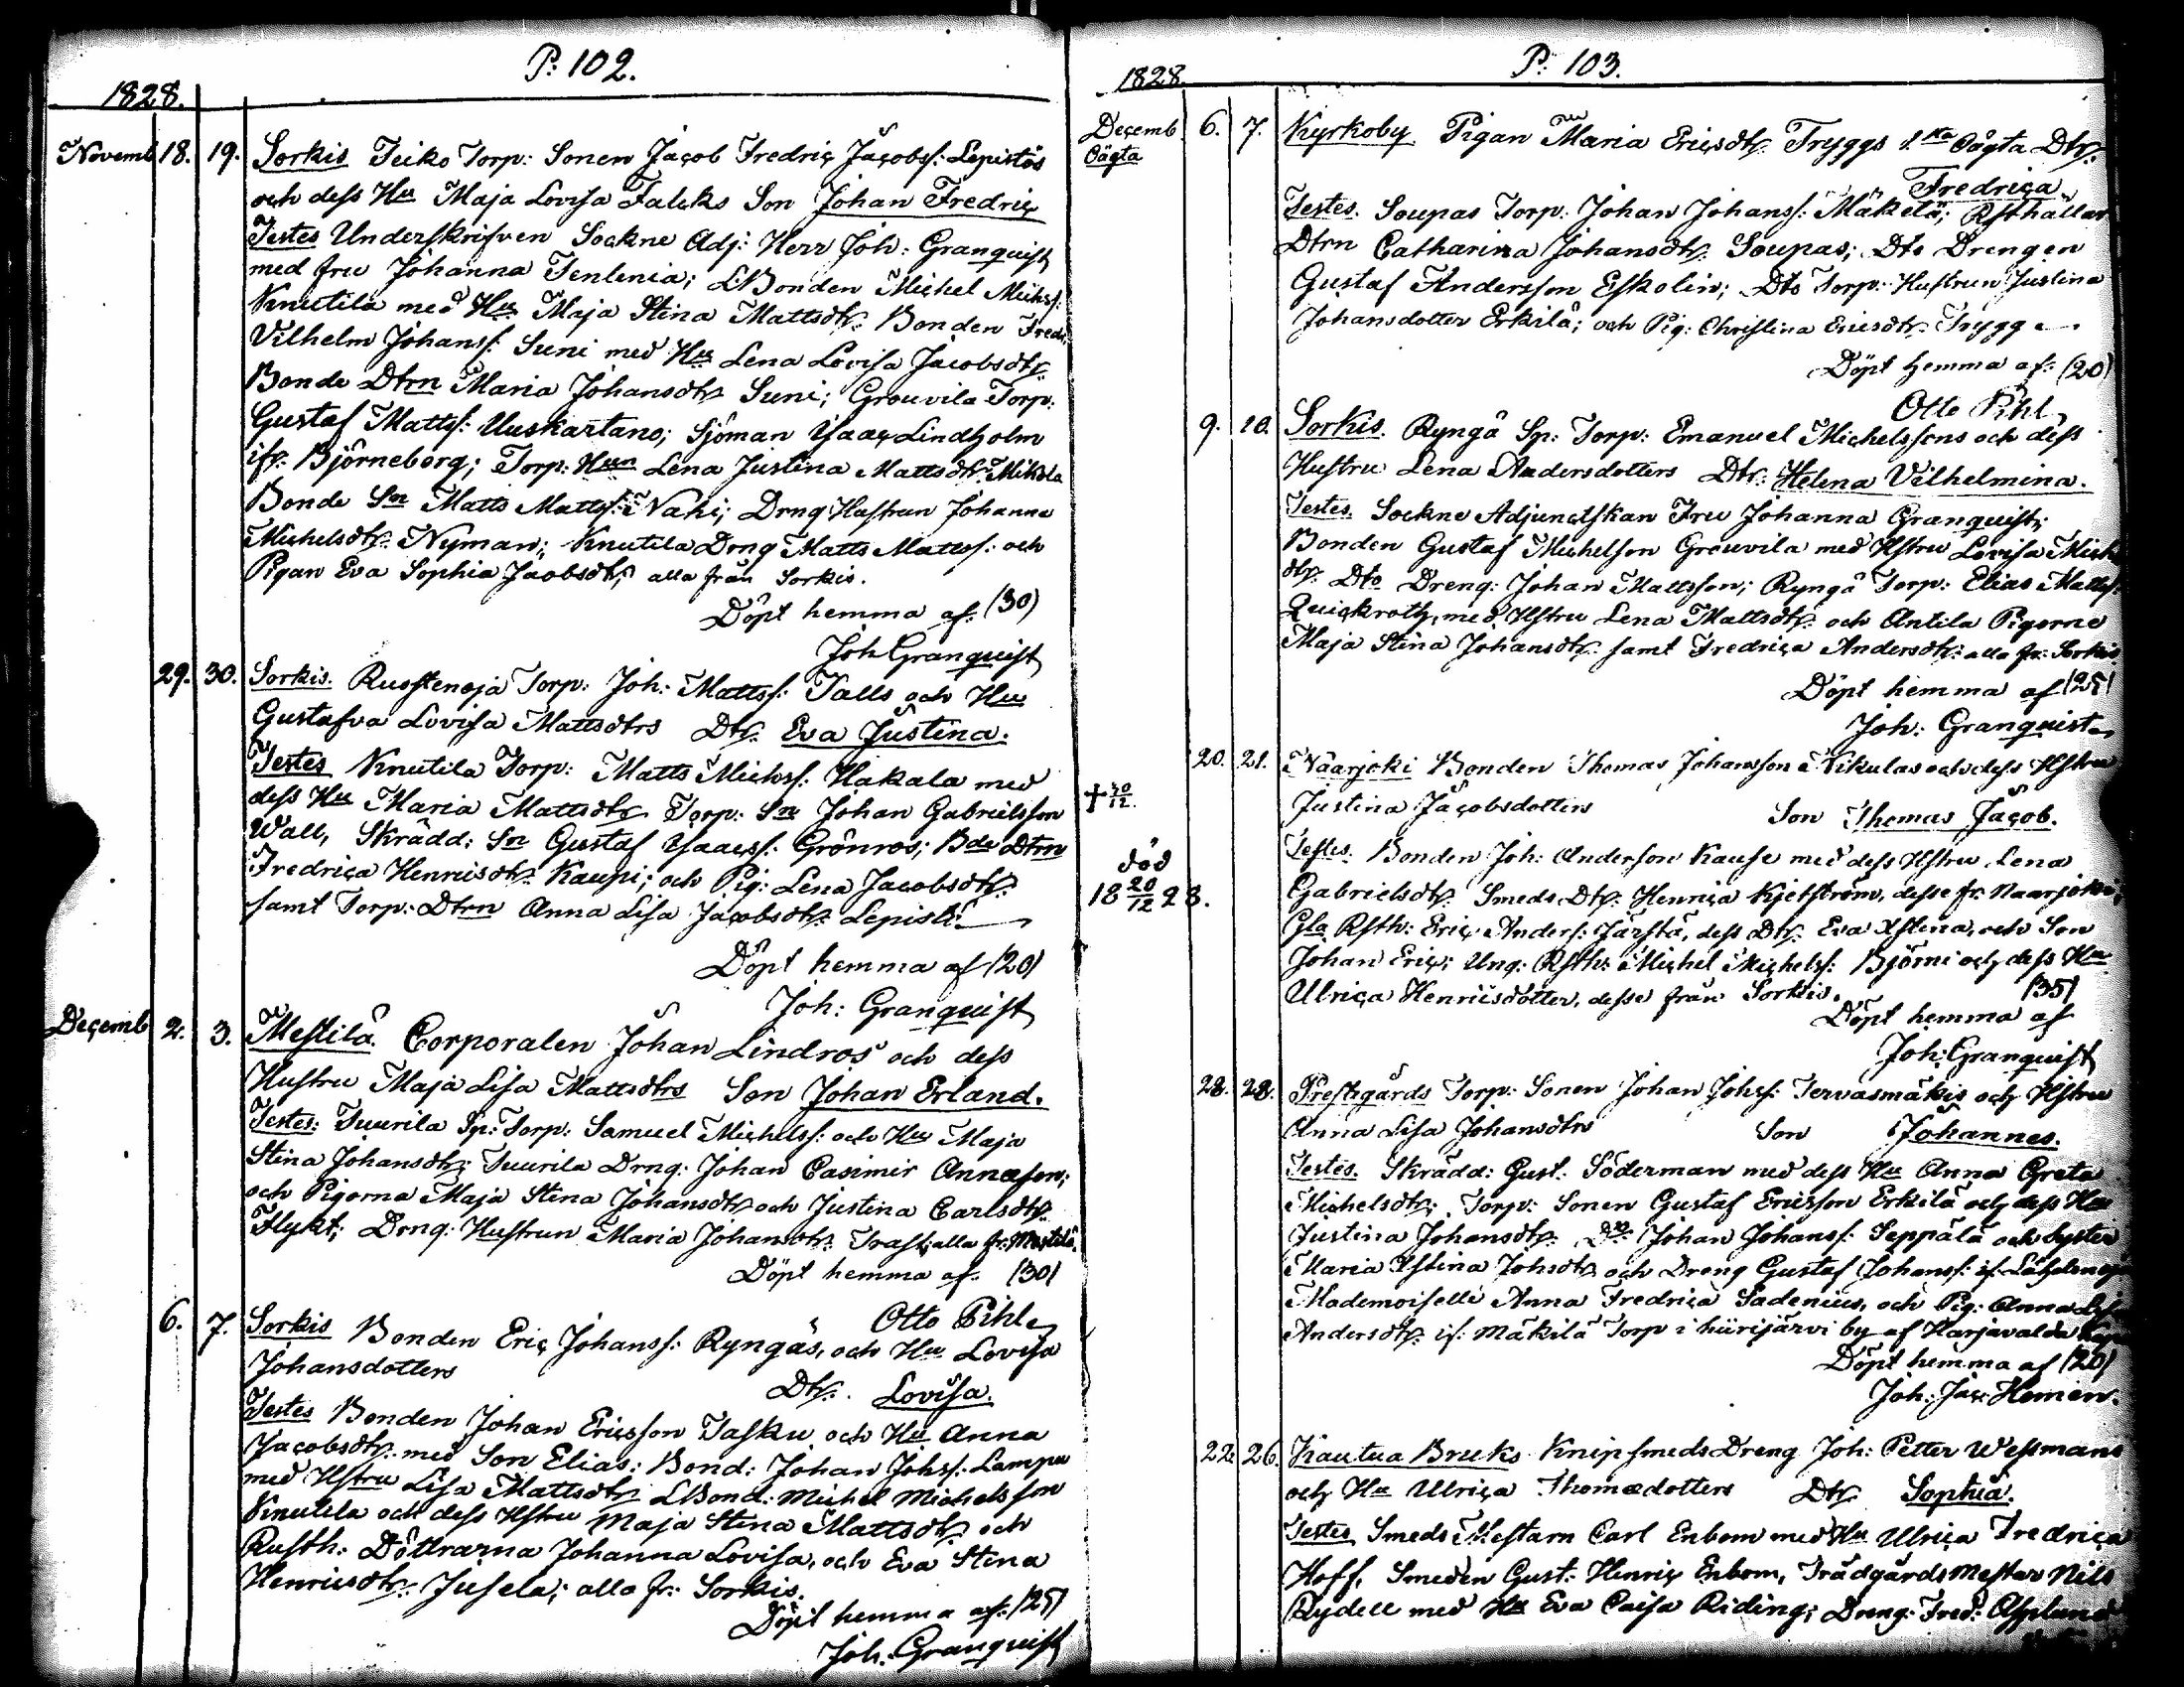 P: 102.
1828.
Novemb 18. 19. Sorkis Teiko Torp: Sonen Jacob Fredric Jacobss: Lepistös
och dess Hu Maja Lovisa Falcks Son Johan Fredric
Testes Underskrifven Sockne Adj: Herr Joh: Granquist
med fru Johanna Tenlenia; LBonden Michel Michss:
Knutila med Hu Maja Stina Mattsdtr. Bonden Fredr:
Vilhelm Johanss: Suni med Hu Lena Lovisa Jacobsdtr.
Bonde Dtrn Maria Johansdtr Suni; Grouvila Torp:
Gustaf Mattss: Uuskartano; Sjöman Isaac Lindholm
ifr: Björneborg; Torp: Hun Lena Justina Mattsdtr Mikola
Bonde Sn Matts Mattss: Nahi; Drng Hustrun Johanna
Michelsdtr. Nyman; Knutila Drng Matts Mattss: och
Pigan Eva Sophia Jacobsdtr, alla från Sorkis.
Döpt hemma af. (30)
Joh Granquist
29. 30. Sorkis. Ruostenoja Torp: Joh: Mattss: Talls och Hu
Gustafva Lovisa Mattsdtrs Dtr. Eva Justina.
Testes Knutila Torp: Matts Michss: Hakala med
dess Hu Maria Mattsdtr Torp: Sn Johan Gabrielsson
Wall, Skrädd: Sn Gustaf Isaacss: Grönros; Bde Dtrn
Fredrica Henricsdtr. Kaupi; och Pig: Lena Jacobsdtr.
samt Torp: Dtrn Anna Lisa Jacobsdtr. Lepistö.
Döpt hemma af (20)
Joh: Granquist
Decemb 2. 3. Mestilä. Corporalen Johan Lindros och dess
Hustru Maja Lisa Mattsdtrs Son Johan Erland.
Testes: Tuurila Sp: Torp: Samuel Michelss: och Hu Maja
Stina Johansdtr; Tuurila Drng: Johan Casimir Annæson;
och Pigorna Maja Stina Johansdtr och Justina Carlsdtr.
Flykt; Drng: Hustrun Maria Johansdtr. Trast; alla fr: Mestilä.
Döpt hemma af. (30)
Otto Pihl
6. 7. Sorkis Bonden Eric Johanss: Ryngäs, och Hu Lovisa
Johansdotters Dtr. Lovisa.
Testes Bonden Johan Ericsson Tasku och Hu Anna
Jacobsdtr. med Son Elias: Bond: Johan Johss: Lampu
med Hstru Lisa Mattsdtr LBond: Michel Michelsson
Knutila och dess Hstru Maja Stina Mattsdtr och
Rusth: Döttrarna Johanna Lovisa, och Eva Stina
Henricsdtr. Jusela; alla fr: Sorkis.
Döpt hemma af. (25)
Joh: Granquist
P: 103.
1828.
Decemb 6. 7. Kyrkoby. Pigan Maria Ericsdtr Tryggs 1.sta Oägta Dtr.
Oägta Fredrica
Testes. Soupas Torp: Johan Johanss: Mäkelä; Rsthållar
Dtrn Catharina Johansdtr. Soupas; Dto Drengen
Gustaf Andersson Eskolin; Dto Torp: Hustrun Justina
Johansdotter Erkilä; och Pig: Christina Ericsdtr. Trygg
Döpt hemma af: (20)
Otto Pihl
9. 10. Sorkis. Ryngä Sp: Torp: Emanuel Michelssons och dess
Hustru Lena Andersdotters Dtr: Helena Vilhelmina.
Testes. Sockne Adjunctskan Fru Johanna Granquist;
Bonden Gustaf Michelson Grouvila med Hstru Lovisa Mich
dtr. Dto Dreng: Johan Mattsson; Ryngä Torp: Elias Mattss:
Quickroth, med Hstru Lena Mattsdtr. och Antila Pigorne
Maja Stina Johansdtr. samt Fredrica Andersdtr: alla fr: Sorkis
Döpt hemma af (25)
Joh: Granquist
20. 21. Naarjoki Bonden Thomas Johansson Nikulas och dess Hstru
+ 30/12. Justina Jacobsdotters Son Thomas Jacob.
död Testes. Bonden Joh: Anderson Kause med dess Hstru Lena
18 20/12 28. Gabrielsdtr. Smeds Dtr. Henrica Kjelström, desse fr: Naarjoki;
Gla Rsth: Eric Anders: Järstä, dess Dtr. Eva Xstina, och Son
Johan Eric; Ung: Rsth: Michel Michelss: Björni och dess Hu
Ulrica Henricsdotter, desse från Sorkis. (35)
Döpt hemma af
Joh: Granquist
28. 28. Prestgårds Torp: Sonen Johan Johss: Tervasmäkis och Hstru
Anna Lisa Johansdtrs Son Johannes.
Testes. Skrädd: Gust: Söderman med dess Hu Anna Greta
Michelsdtr; Torp: Sonen Gustaf Ericsson Erkilä och dess Hu
Justina Johansdtr. Do Johan Johanss: Seppälä och Syster
Maria Xstina Johsdtr och Dreng Gustaf Johanss: if.
Mademoiselle Anna Fredrica Sadenius, och Pig: Anna Lisa
Andersdtr. if: Mäkilä Torp i hiirijärvi by af Harjavalda
Döpt hemma af (20)
Joh: Jac: Hemen.
22. 26. Kautua Bruks Knipsmeds Dreng Joh: Petter Wessmans
och Hu Ulrica Thomædotters Dtr. Sophia.
Testes Smeds Mestarn Carl Enbom med Hu Ulrica Fredrica
Hoff, Smeden Gust: Henric Enbom, Trädgårds Mestar Nils
Rydell med Hu Eva Caisa Riding; Dreng: Fred: Asplund